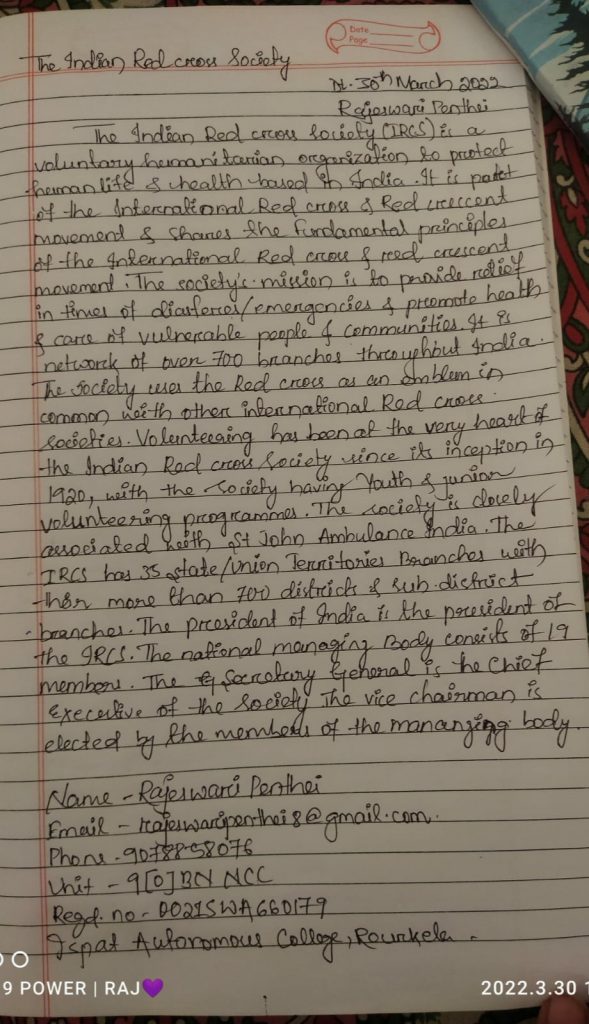 Date
Page
The Indian Red cross Society
Dt. 30th March 2022
Rajeswari Penthei
The Indian Red cross Society (IRCS) is a
voluntary humanitarian organization to protect
human life & health based in India. It is part
of the International Red cross & Red crescent
movement & shares the Fundamental principles
of the International Red cross & reed crescent
movement. The society's mission is to provide relief
in times of diasterces/emergencies & promote heath
& care of vulnerable people & communities. It is
network of over 700 branches throughout India.
The Society uses the Red cross as an emblem in
common with other international Red cross.
Societies. Volunteeing has been at the very heart of
the Indian Red cross Society since its inception in
1920, with the society having Youth & junior
volunteering programmes. The society is closely
associated with St John Ambulance India. The
IRCS has 35 state/Union Territories Branches with
their more than 700 districts & sub district
branches. The president of India is the president of
the IRCS. The national managing Body consists of 19
members. The Secratary General is he Chief
Executive of the Society The vice chairman is
elected by the members of the mananging body.
Name - Rajeswari Penthei
Email - rajeswaripenthei8@gmail.com.
Phone - 9078858076
Unit - 9[O]BN NCC
Regd. no - OO21SWA660179
Ispat Autonomous College, Rourkela.
9 POWER | RAJ💜
2022.3.30 1